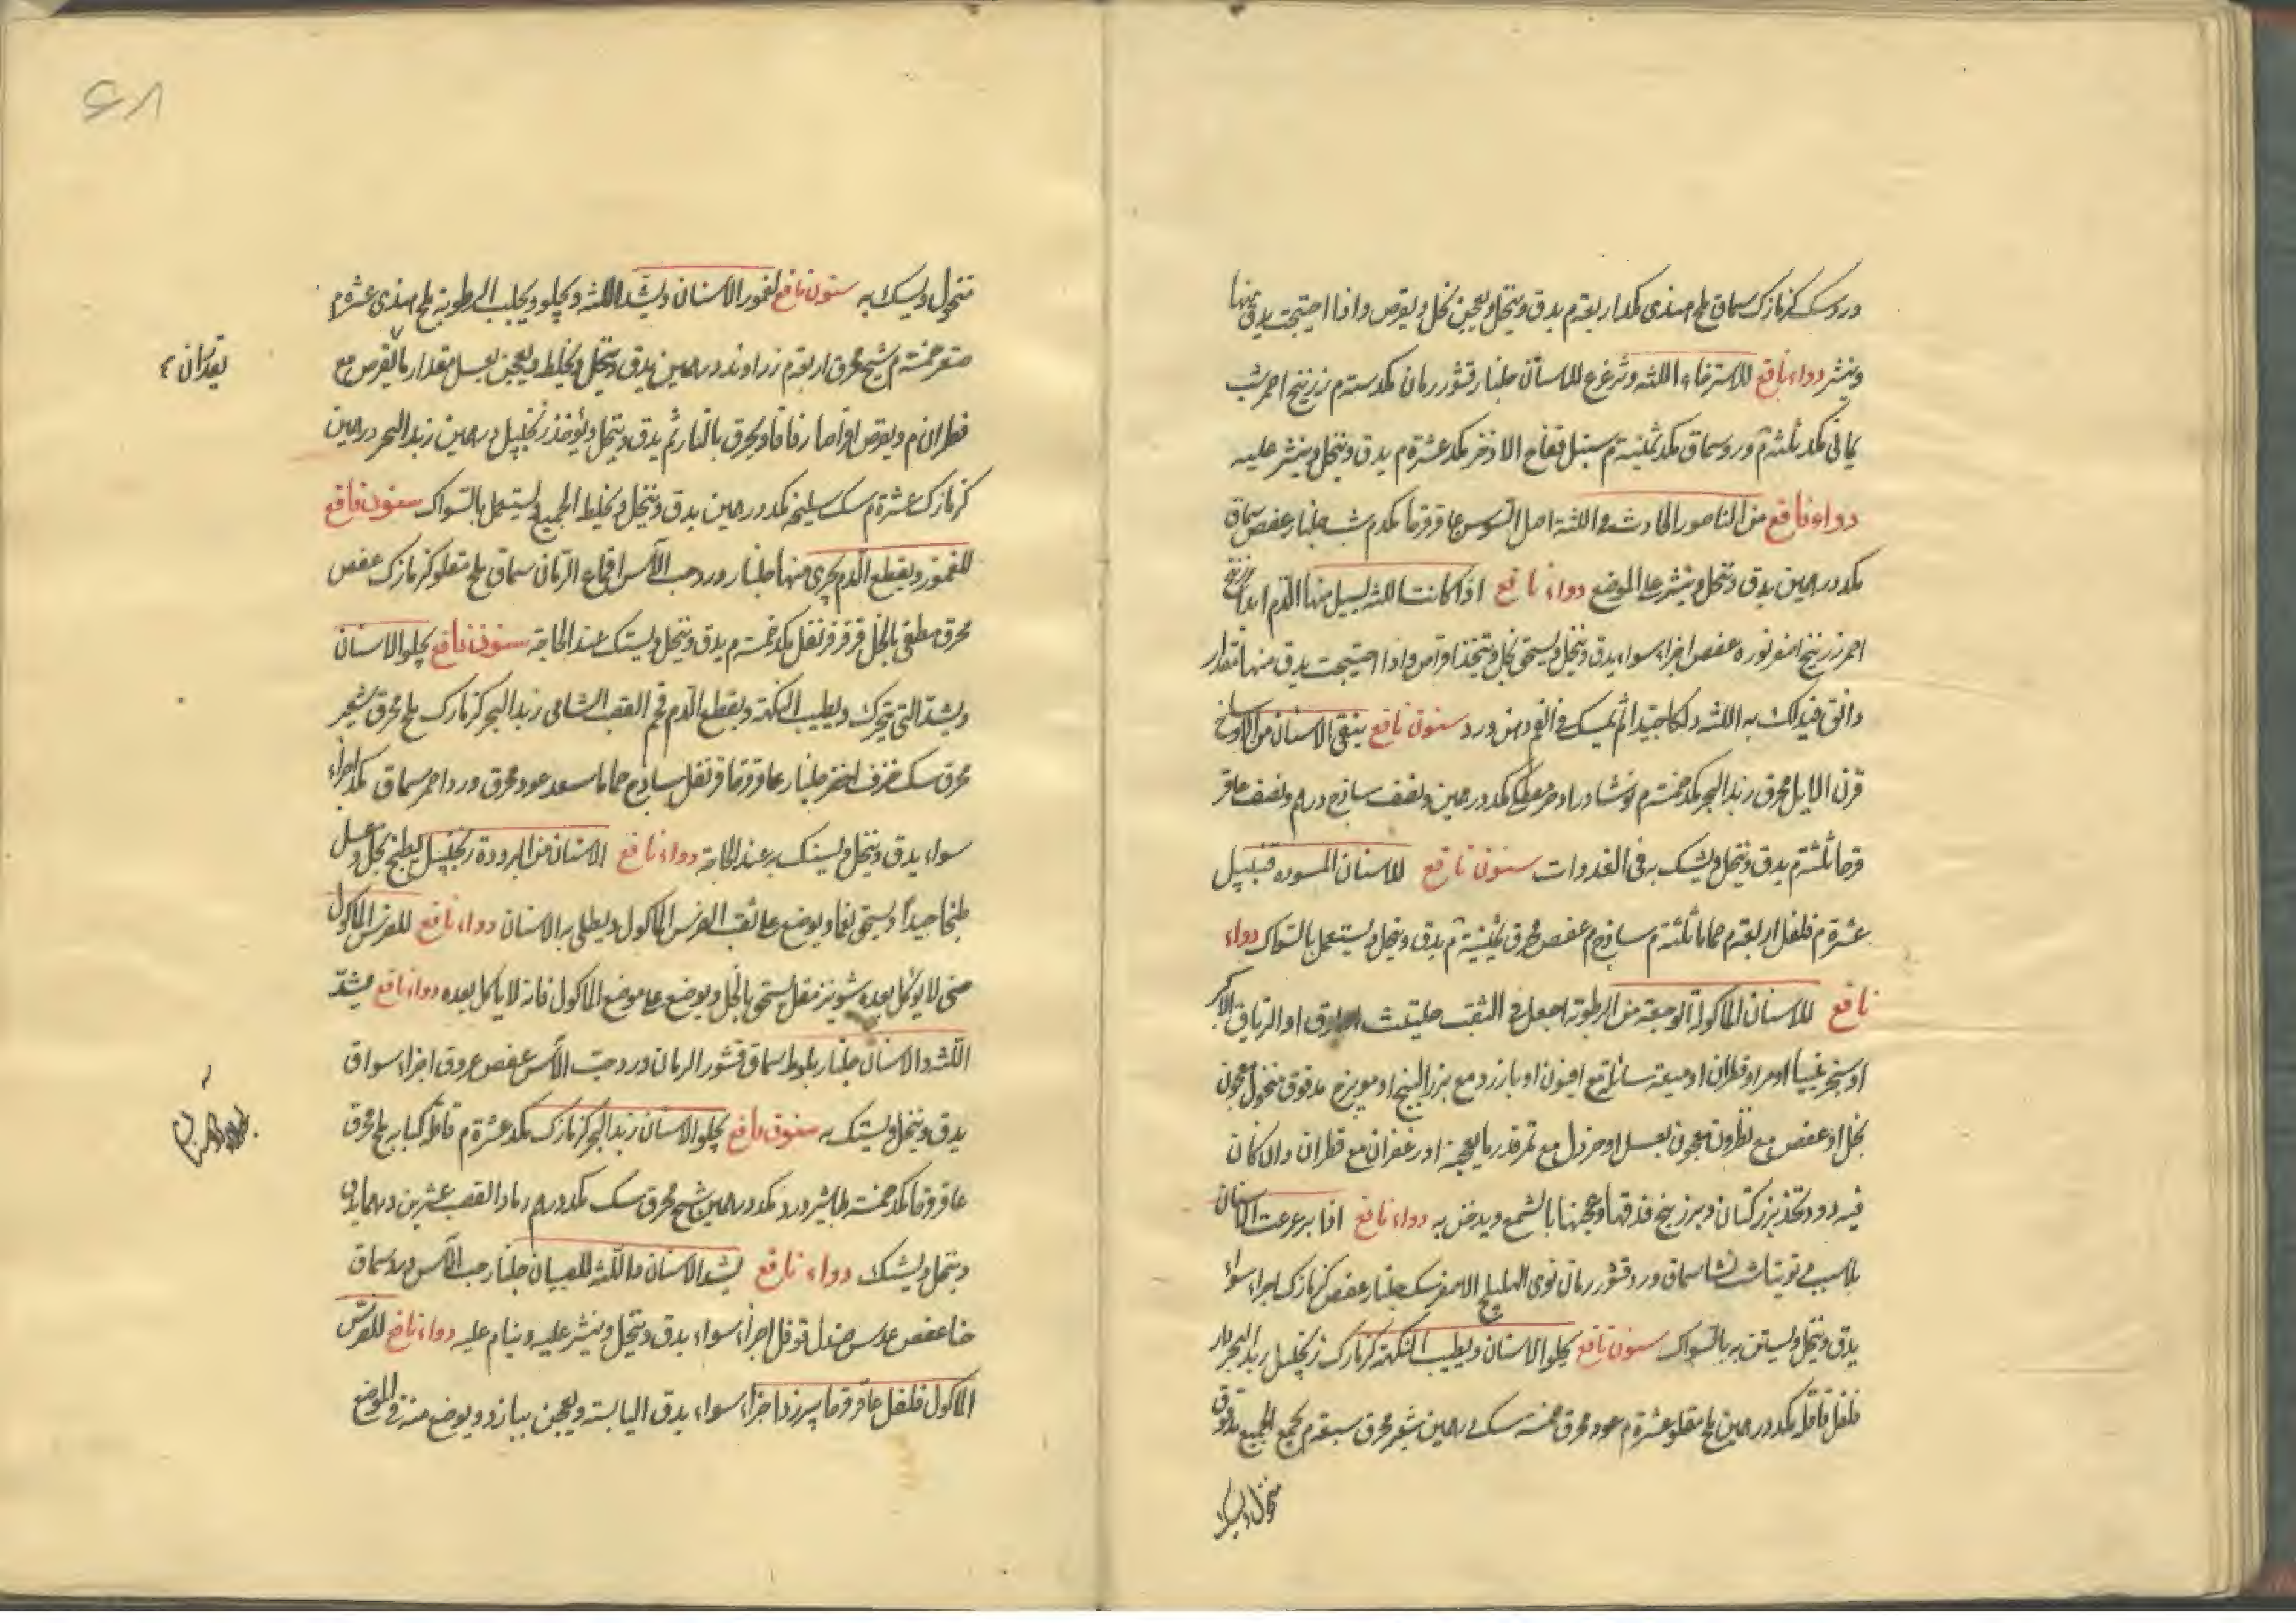 ورد وسك كزمازك سماق ملح هندى مكد اربعة م يدق وينخل ويعجن بخل ويقرص واذا احتيجت يدق منها
وينثر دواء نافع للاسترخاء اللثة وتزعزع للاسنان جلنار قشور رمان مكد ستة م زرنيخ احمر شب
يمانى مكد ثلثة م ورد وسماق مكد ثمنية م سنبل فقاح الاذخر مكد عشرة م يدق وينخل وينثر عليه
دواء نافع من الناصور الحادث فى اللثة اصل السوسن عاقرقرحا مكد م شب جلنار عفص سماق
مكد درهمين يدق وينخل وينثر على الموضع دواء نافع اذا كانت اللثة يسيل منها الدم ابدا زرنيخ
احمر زرنيخ اصفر نوره عفص اجزاء سواء يدق وينخل ويسحق بخل ويتخذ اقراص واذا احتيجت يدق منها مقدار
دانق فيدلك به اللثة دلكا جيدا ثم يمسك فى الفم دهن ورد سنون نافع ينقى الاسنان من الاوساخ
قرن الايل محرق زبد البحر مكد خمسة م نوشادر مصطكى مكد درهمين ونصف ساذج درهم ونصف عاقر
قرحا ثلثة م يدق وينخل ويستك به فى الغدوات سنون نافع للاسنان المسوده قنبيل
عشرة م فلفل اربعة م حماما ثلثة م ساذج م عفص محرق ثمنية م يدق وينخل ويستعمل بالسواك دواء
نافع للاسنان الماكولة الوجعة من الرطوبة اجعل فى الثقب حلتيت او الترياق الاكبر
او سنجرينيا او مر او قطران او ميعة سائلة مع افيون او بازرد مع بزر البنج او مويزج مدقوق منخول معجون
بخل او عفص مع نطرون معجون بعسل او خردل مع تمر قدر ما يعجنه او زعفران مع قطران وان كان
فيه دود وتخذ بزر كتان وبرز بنج فدقهما وعجنها بالشمع ويدخن به دواء نافع اذا برعرعت الاسنان
بلا سبب سماق ورد قشور رمان نوى الهليلج الاصفر سك جلنار عفص كزمازك اجزاء سواء
يدق وينخل ويستن به بالسواك سنون نافع يجلو الاسنان ويطيب النكهة كزمازك زنجبيل زبد البحر
فلفل قاقلة مكد درهمين ملح مقلو عشرة م عود محرق خمسة سك درهمين شعير محرق سبعة م يجمع الجميع مدقوق
منخول ويستك
منخول ويستك به سنون نافع لغمور الاسنان ويشد اللثة ويجلو ويجلب الرطوبة ملح هندى عشرة م
صعتر خمسة م شيح محرق اربعة م زراوند درهمين يدق وينخل ويخلط ويعجن بعسل مقدار ما يقرص مع
قطران م ويقرص اقراصا رقاقا ويحرق بالنار ثم يدق وينخل ويؤخذ زنجبيل درهمين زبد البحر درهمين
كزمازك عشرة م سك سليخه مكد درهمين يدق وينخل ويخلط الجميع ويستعمل بالسواك سنون نافع
للغمور ويقطع الدم يجرى منها جلنار ورد حب الآس اقماع الرمان سماق ملح مقلو كزمازك عفص
محرق مطفى بالخل قرنفل مكد خمسة م يدق وينخل ويستك عند الحاجة سنون نافع يجلو الاسنان
ويشد التى يتحرك ويطيب النكهة ويقطع الدم فحم القصب الشامى زبد البحر كزمازك ملح محرق شعير
محرق سك خزف اخضر جلنار عاقرقرحا قرنفل ساذج حماما سعد عود محرق ورد احمر سماق مكد اجزاء
سواء يدق وينخل ويستك به عند الحاجة دواء نافع الاسنان من البرودة زنجبيل يطبخ بخل وعسل
طبخا جيدا ويسحق نعما ويوضع على ثقب الضرس الماكول ويطلى به الاسنان دواء نافع للضرس الماكول
حتى لا يؤكل بعده شونيز مقل يسحق بالخل ويوضع على موضع الماكول فانه لا ياكل بعده دواء نافع يشد
اللثة والاسنان جلنار بلوط سماق قشور الرمان ورد حب الآس عفص عروق اجزاء سواء
يدق وينخل ويستك به سنون نافع يجلو الاسنان زبد البحر كزمازك مكد عشرة م قاقلة كبابه ملح محرق
عاقرقرحا مكد خمسة طباشير ورد مكد درهمين شيح محرق سك مكد درهم رماد القصب عشرين درهما يدق
وينخل ويستك دواء نافع يشد الاسنان واللثة للصبيان جلنار حب الآس ورد سماق
حنا عفص عدس صندل فوفل اجزاء سواء يدق وينخل وينثر عليه وينام عليه دواء نافع للضرس
الماكول فلفل عاقرقرحا بيرزد اجزاء سواء يدق اليابسة ويعجن ببازرد ويوضع منه فى الموضع